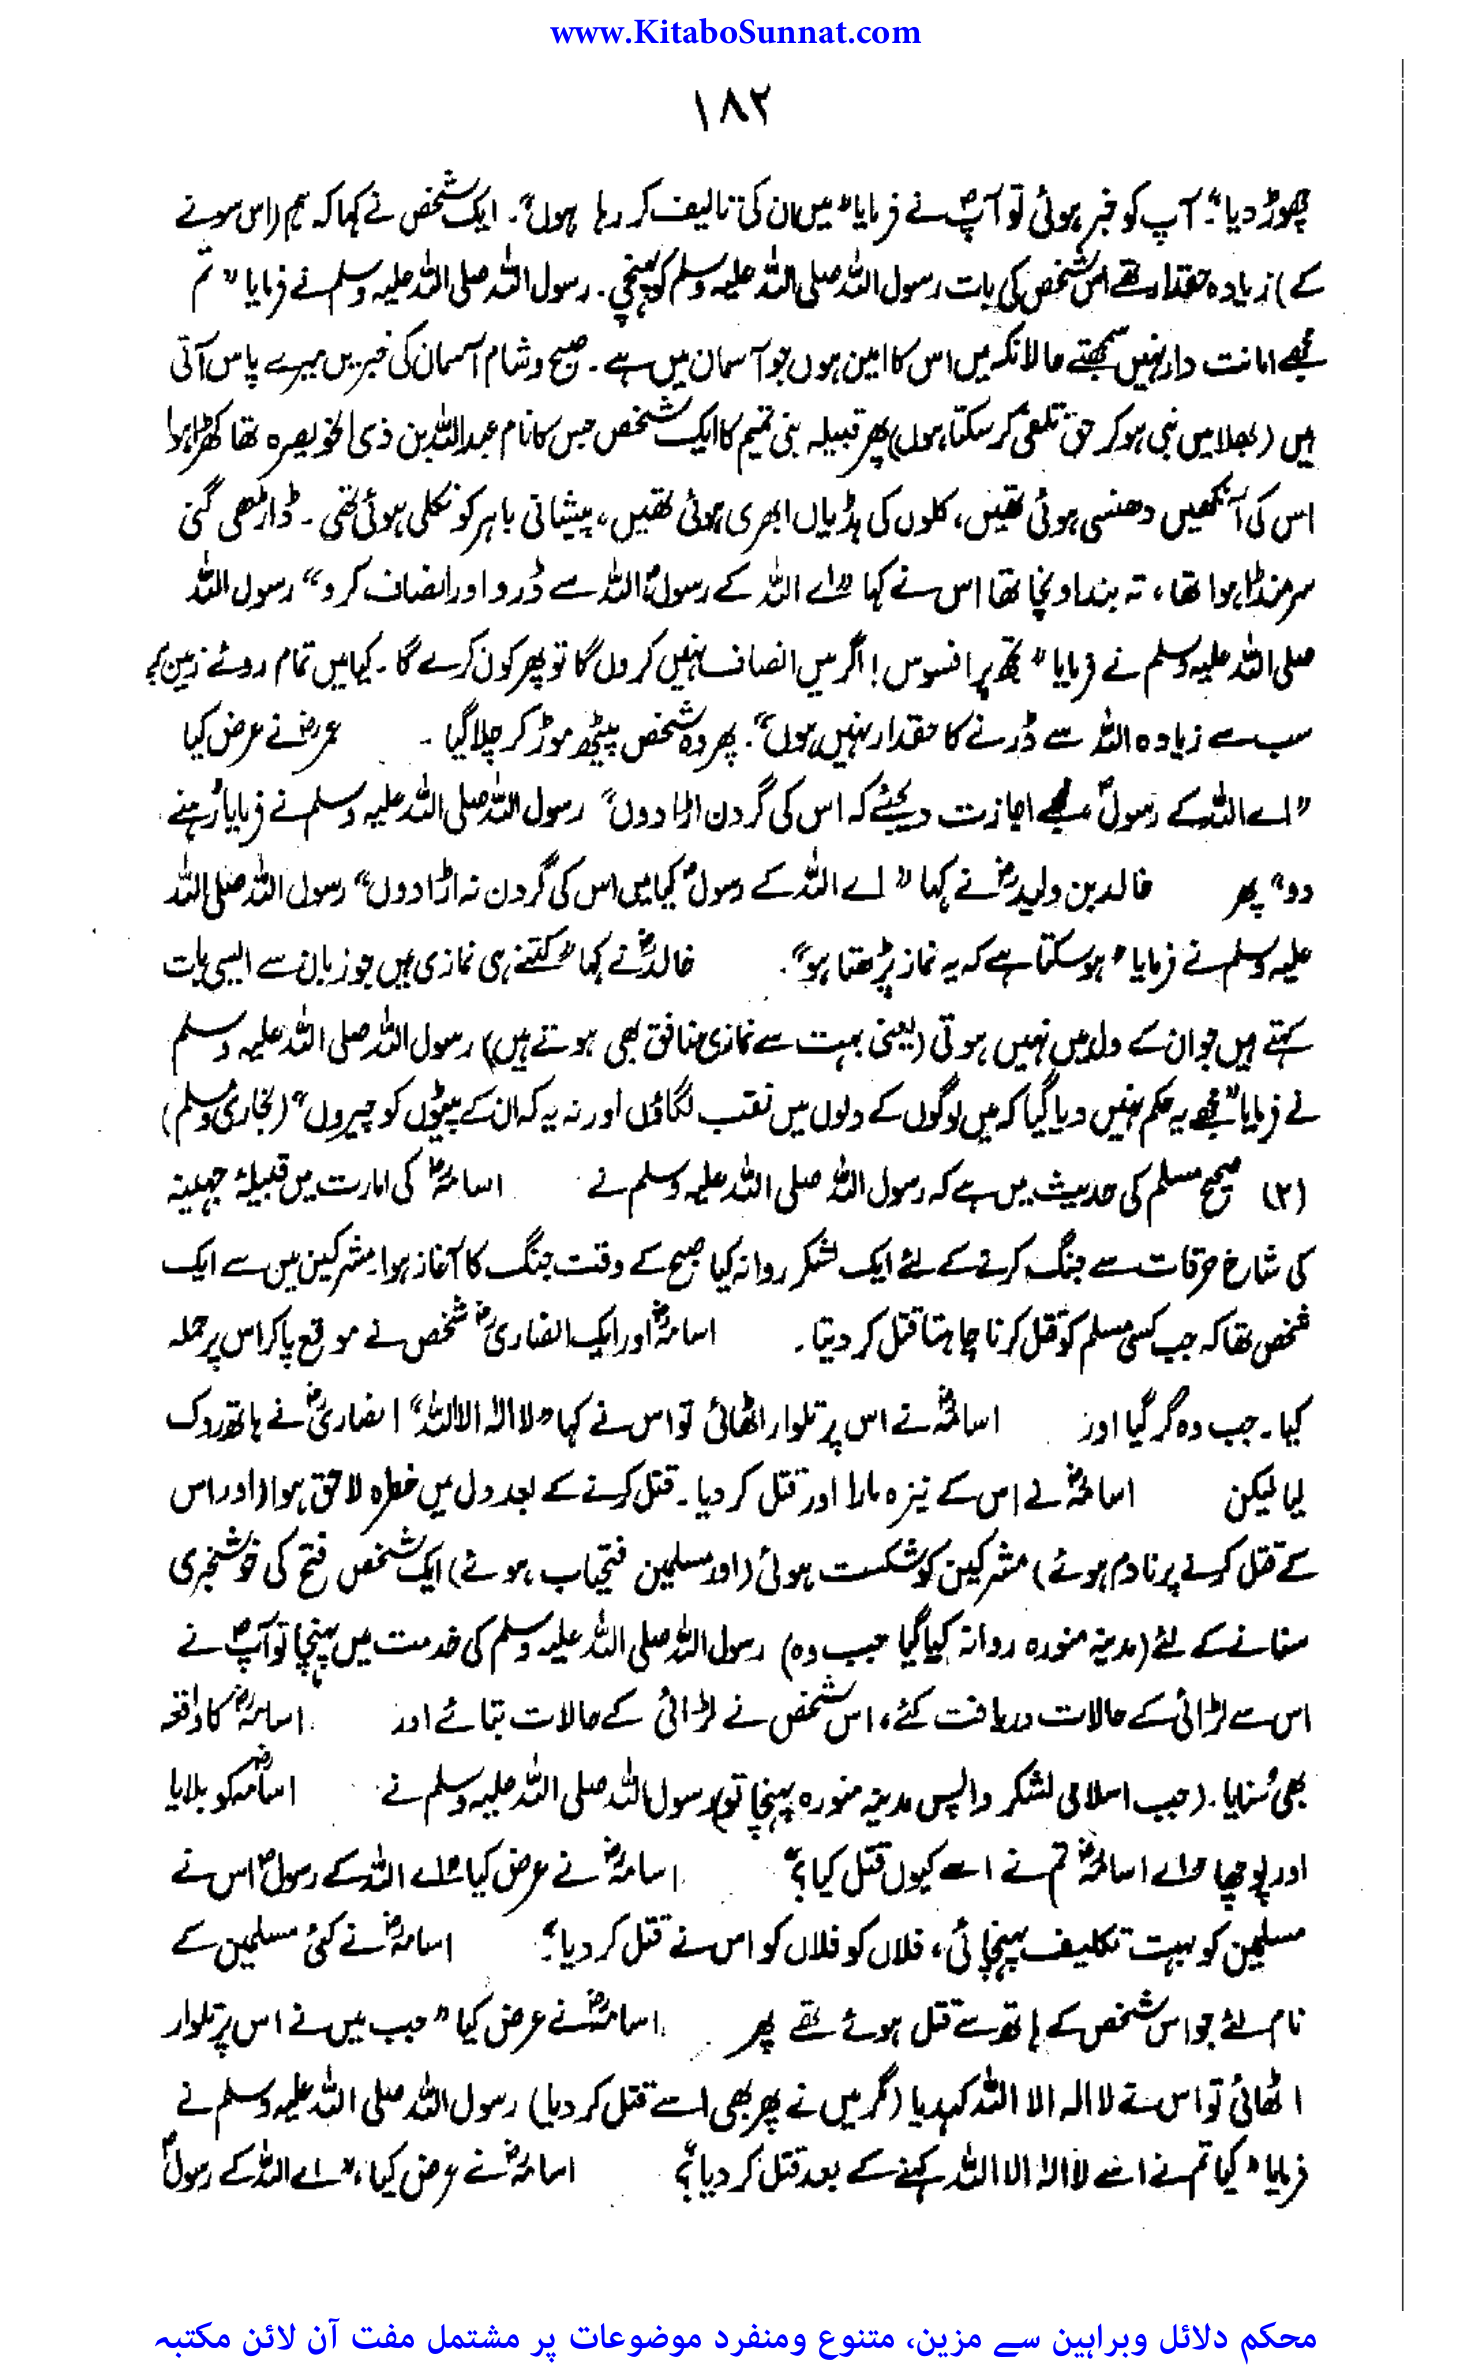 www.KitaboSunnat.com
۱۸۲
چھوڑ دیا"۔ آپ کو خبر ہوئی تو آپؐ نے فرمایا "میں ان کی تالیف کر رہا ہوں"۔ ایک شخص نے کہا کہ ہم (اس سونے
کے) زیادہ حقدار تھے اس شخص کی بات رسول اللہ صلی اللہ علیہ وسلم کو پہنچی۔ رسول اللہ صلی اللہ علیہ وسلم نے فرمایا "تم
مجھے امانت دار نہیں سمجھتے حالانکہ میں اس کا امین ہوں جو آسمان میں ہے۔ صبح و شام آسمان کی خبریں میرے پاس آتی
ہیں (بھلا میں نبی ہو کر حق تلفی کر سکتا ہوں) پھر قبیلہ بنی تمیم کا ایک شخص جس کا نام عبداللہ بن ذی الخویصرہ تھا کھڑا ہوا
اس کی آنکھیں دھنسی ہوئی تھیں، کلوں کی ہڈیاں ابھری ہوئی تھیں، پیشانی باہر کو نکلی ہوئی تھی۔ ڈاڑھی گھنی
سر منڈا ہوا تھا، تہ بند اونچا تھا اس نے کہا "اے اللہ کے رسولؐ اللہ سے ڈرو اور انصاف کرو" رسول اللہ
صلی اللہ علیہ وسلم نے فرمایا "تجھ پر افسوس! اگر میں انصاف نہیں کروں گا تو پھر کون کرے گا۔ کیا میں تمام روئے زمین کے
سب سے زیادہ اللہ سے ڈرنے کا حقدار نہیں ہوں"۔ پھر وہ شخص پیٹھ موڑ کر چلا گیا۔ عمرؓ نے عرض کیا
"اے اللہ کے رسولؐ مجھے اجازت دیجئے کہ اس کی گردن اڑا دوں" رسول اللہ صلی اللہ علیہ وسلم نے فرمایا "رہنے
دو" پھر خالد بن ولیدؓ نے کہا "اے اللہ کے رسولؐ کیا میں اس کی گردن نہ اڑا دوں" رسول اللہ صلی اللہ
علیہ وسلم نے فرمایا "ہو سکتا ہے کہ یہ نماز پڑھتا ہو"۔ خالدؓ نے کہا "کتنے ہی نمازی ہیں جو زبان سے ایسی بات
کہتے ہیں جو ان کے دل میں نہیں ہوتی (یعنی بہت سے نمازی منافق بھی ہوتے ہیں) رسول اللہ صلی اللہ علیہ وسلم
نے فرمایا "مجھے یہ حکم نہیں دیا گیا کہ میں لوگوں کے دلوں میں نقب لگاؤں اور نہ یہ کہ ان کے پیٹوں کو چیروں" (بخاری و مسلم)
(۲) صحیح مسلم کی حدیث میں ہے کہ رسول اللہ صلی اللہ علیہ وسلم نے اسامہؓ کی امارت میں قبیلۂ جہینہ
کی شاخ حرقات سے جنگ کرنے کے لئے ایک لشکر روانہ کیا صبح کے وقت جنگ کا آغاز ہوا۔ مشرکین میں سے ایک
شخص تھا کہ جب کسی مسلم کو قتل کرنا چاہتا قتل کر دیتا۔ اسامہؓ اور ایک انصاریؓ شخص نے موقع پا کر اس پر حملہ
کیا۔ جب وہ گر گیا اور اسامہؓ نے اس پر تلوار اٹھائی تو اس نے کہا "لا الٰہ الا اللہ" انصاریؓ نے ہاتھ روک
لیا لیکن اسامہؓ نے اس کے نیزہ مارا اور قتل کر دیا۔ قتل کرنے کے بعد دل میں خطرہ لاحق ہوا (اور اس
کے قتل کرنے پر نادم ہوئے) مشرکین کو شکست ہوئی (اور مسلمین فتحیاب ہوئے) ایک شخص فتح کی خوشخبری
سنانے کے لئے (مدینہ منورہ روانہ کیا گیا جب وہ) رسول اللہ صلی اللہ علیہ وسلم کی خدمت میں پہنچا تو آپؐ نے
اس سے لڑائی کے حالات دریافت کئے، اس شخص نے لڑائی کے حالات بتائے اور اسامہؓ کا واقعہ
بھی سنایا۔ (جب اسلامی لشکر واپس مدینہ منورہ پہنچا تو) رسول اللہ صلی اللہ علیہ وسلم نے اسامہؓ کو بلایا
اور پوچھا "اے اسامہؓ تم نے اسے کیوں قتل کیا؟" اسامہؓ نے عرض کیا "اے اللہ کے رسولؐ اس نے
مسلمین کو بہت تکلیف پہنچائی، فلاں کو فلاں کو اس نے قتل کر دیا"۔ اسامہؓ نے کئی مسلمین کے
نام لئے جو اس شخص کے ہاتھ سے قتل ہوئے تھے پھر اسامہؓ نے عرض کیا "جب میں نے اس پر تلوار
اٹھائی تو اس نے لا الہ الا اللہ کہہ دیا (مگر میں نے پھر بھی اسے قتل کر دیا) رسول اللہ صلی اللہ علیہ وسلم نے
فرمایا "کیا تم نے اسے لا الٰہ الا اللہ کہنے کے بعد قتل کر دیا؟" اسامہؓ نے عرض کیا، "اے اللہ کے رسولؐ
محکم دلائل وبراہین سے مزین، متنوع ومنفرد موضوعات پر مشتمل مفت آن لائن مکتبہ